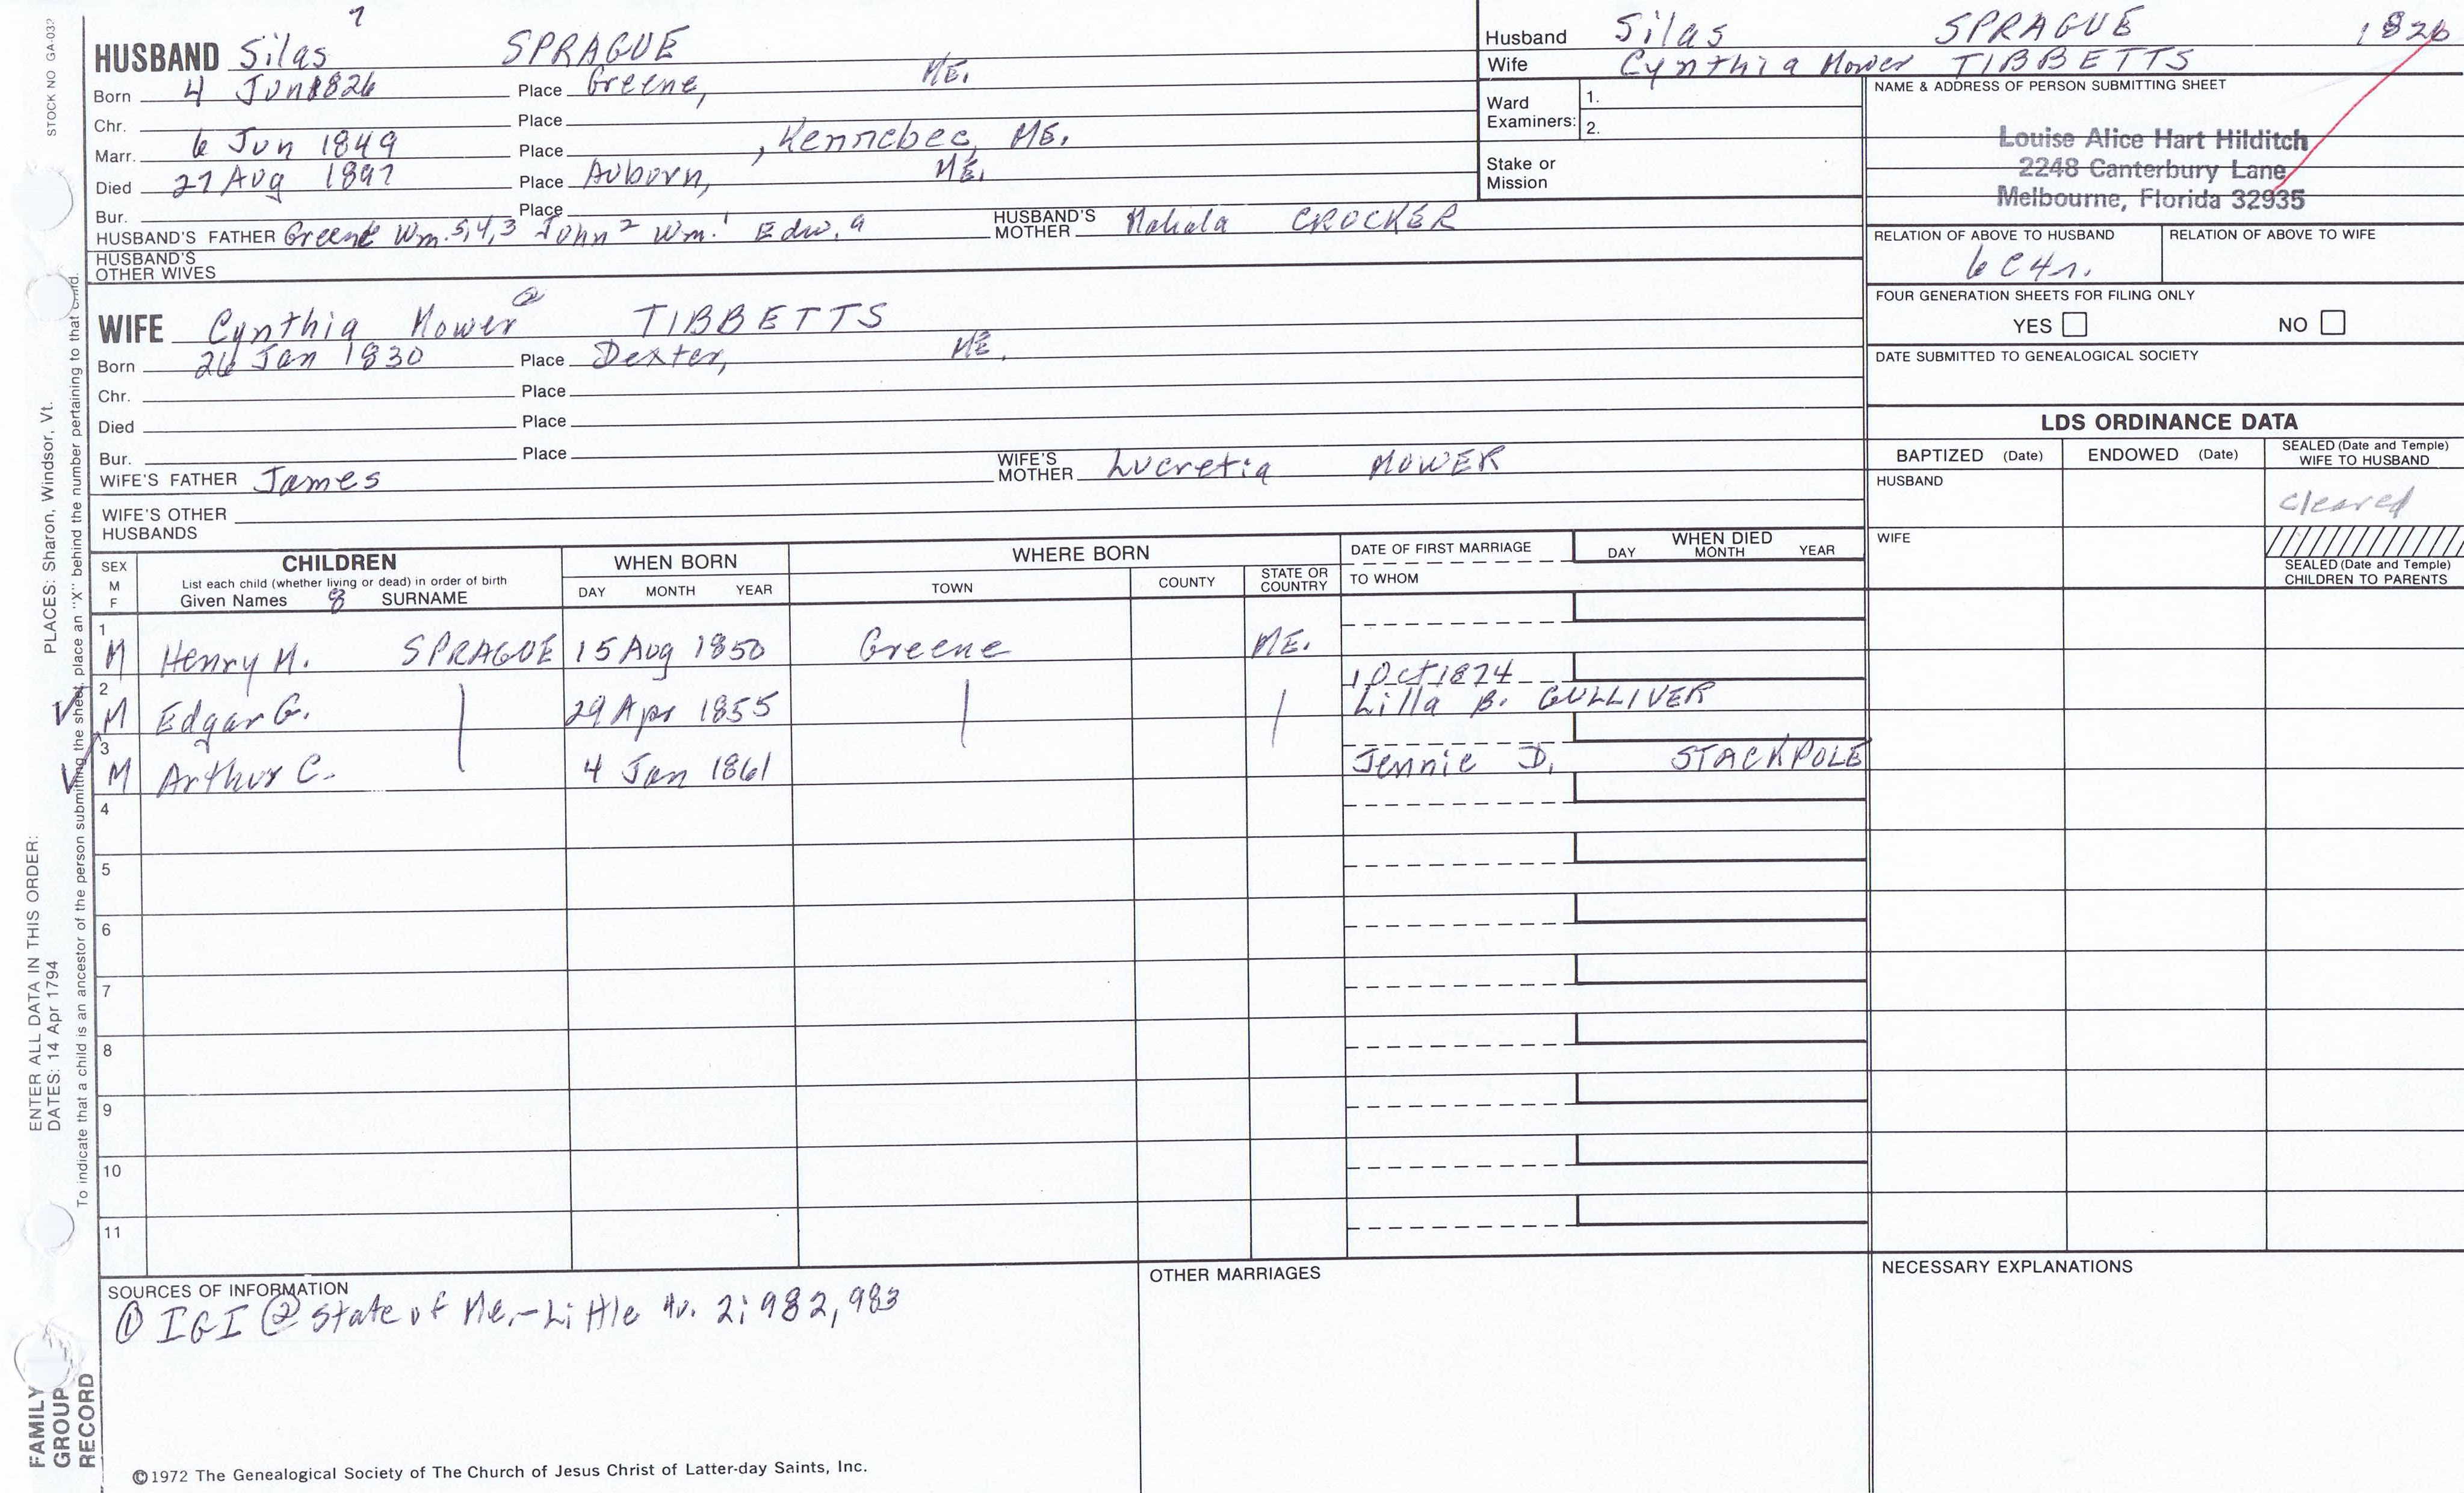 STOCK NO GA-032
7
HUSBAND Silas SPRAGUE
Born 4 Jun 1826 Place Greene, ME.
Chr. Place
Marr. 6 Jun 1849 Place , Kennebec, ME.
Died 27 Aug 1897 Place Auburn, ME.
Bur. Place
HUSBAND'S FATHER Greene Wm. 5,4,3 John 2 Wm. 1 Edw. a HUSBAND'S MOTHER Mahala CROCKER
HUSBAND'S OTHER WIVES
WIFE Cynthia Mower TIBBETTS
Born 26 Jan 1830 Place Dexter, ME.
Chr. Place
Died Place
Bur. Place
WIFE'S FATHER James WIFE'S MOTHER Lucretia MOWER
WIFE'S OTHER HUSBANDS
Husband Silas SPRAGUE 1826
Wife Cynthia Mower TIBBETTS
Ward Examiners: 1.
2.
Stake or Mission
NAME & ADDRESS OF PERSON SUBMITTING SHEET
Louise Alice Hart Hilditch
2248 Canterbury Lane
Melbourne, Florida 32935
RELATION OF ABOVE TO HUSBAND RELATION OF ABOVE TO WIFE
6C4r.
FOUR GENERATION SHEETS FOR FILING ONLY
YES NO
DATE SUBMITTED TO GENEALOGICAL SOCIETY
LDS ORDINANCE DATA
BAPTIZED (Date) ENDOWED (Date) SEALED (Date and Temple) WIFE TO HUSBAND
HUSBAND cleared
WIFE
SEALED (Date and Temple) CHILDREN TO PARENTS
SEX M F CHILDREN WHEN BORN WHERE BORN DATE OF FIRST MARRIAGE WHEN DIED
List each child (whether living or dead) in order of birth
Given Names 8 SURNAME DAY MONTH YEAR TOWN COUNTY STATE OR COUNTRY TO WHOM DAY MONTH YEAR
1 M Henry M. SPRAGUE 15 Aug 1850 Greene ME.
2 M Edgar G. 29 Apr 1855 1 Oct 1874 Lilla B. GULLIVER
3 M Arthur C. 4 Jan 1861 Jennie D. STACKPOLE
4
5
6
7
8
9
10
11
SOURCES OF INFORMATION
① IGI ② State of Me.-Little 4v. 2:982,983
OTHER MARRIAGES
NECESSARY EXPLANATIONS
©1972 The Genealogical Society of The Church of Jesus Christ of Latter-day Saints, Inc.
FAMILY
GROUP
RECORD
ENTER ALL DATA IN THIS ORDER:
DATES: 14 Apr 1794 PLACES: Sharon, Windsor, Vt.
To indicate that a child is an ancestor of the person submitting the sheet, place an "X" behind the number pertaining to that child.